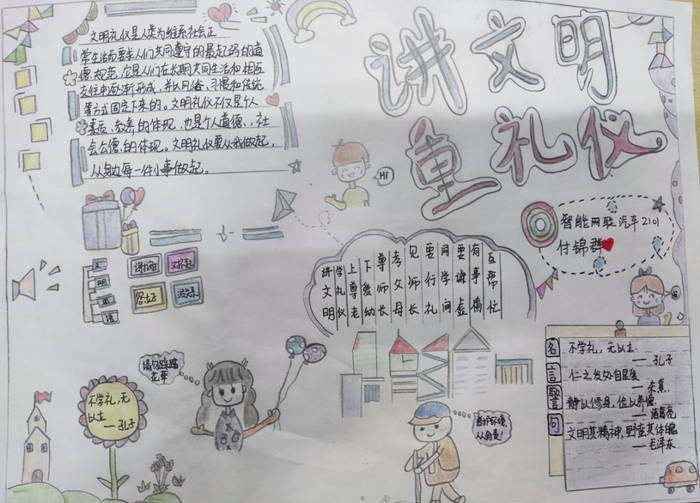 讲文明
重礼仪
文明礼仪是人类为维系社会正
常生活而要求人们共同遵守的最起码的道
德规范，它是人们在长期共同生活和相互
交往中逐渐形成，并以风俗、习惯和传统
等方式固定下来的。文明礼仪不仅是个人
素质、教养的体现，也是个人道德、社
会公德的体现，文明礼仪要从我做起，
从身边每一件小事做起。
Hi
智能网联汽车2101
付锦群
文明用语
谢谢
对不起
讲文明
学礼仪
上尊老
下爱幼
尊师长
孝父母
见师长
要行礼
同学间
要谦虚
有事情
互帮忙
名言警句
不学礼，无以立
——孔子
仁之发处自是爱
——朱熹
静以修身，俭以养德
——诸葛亮
文明其精神，野蛮其体魄
——毛泽东
请勿践踏
花草
不学礼，无
以立
——孔子